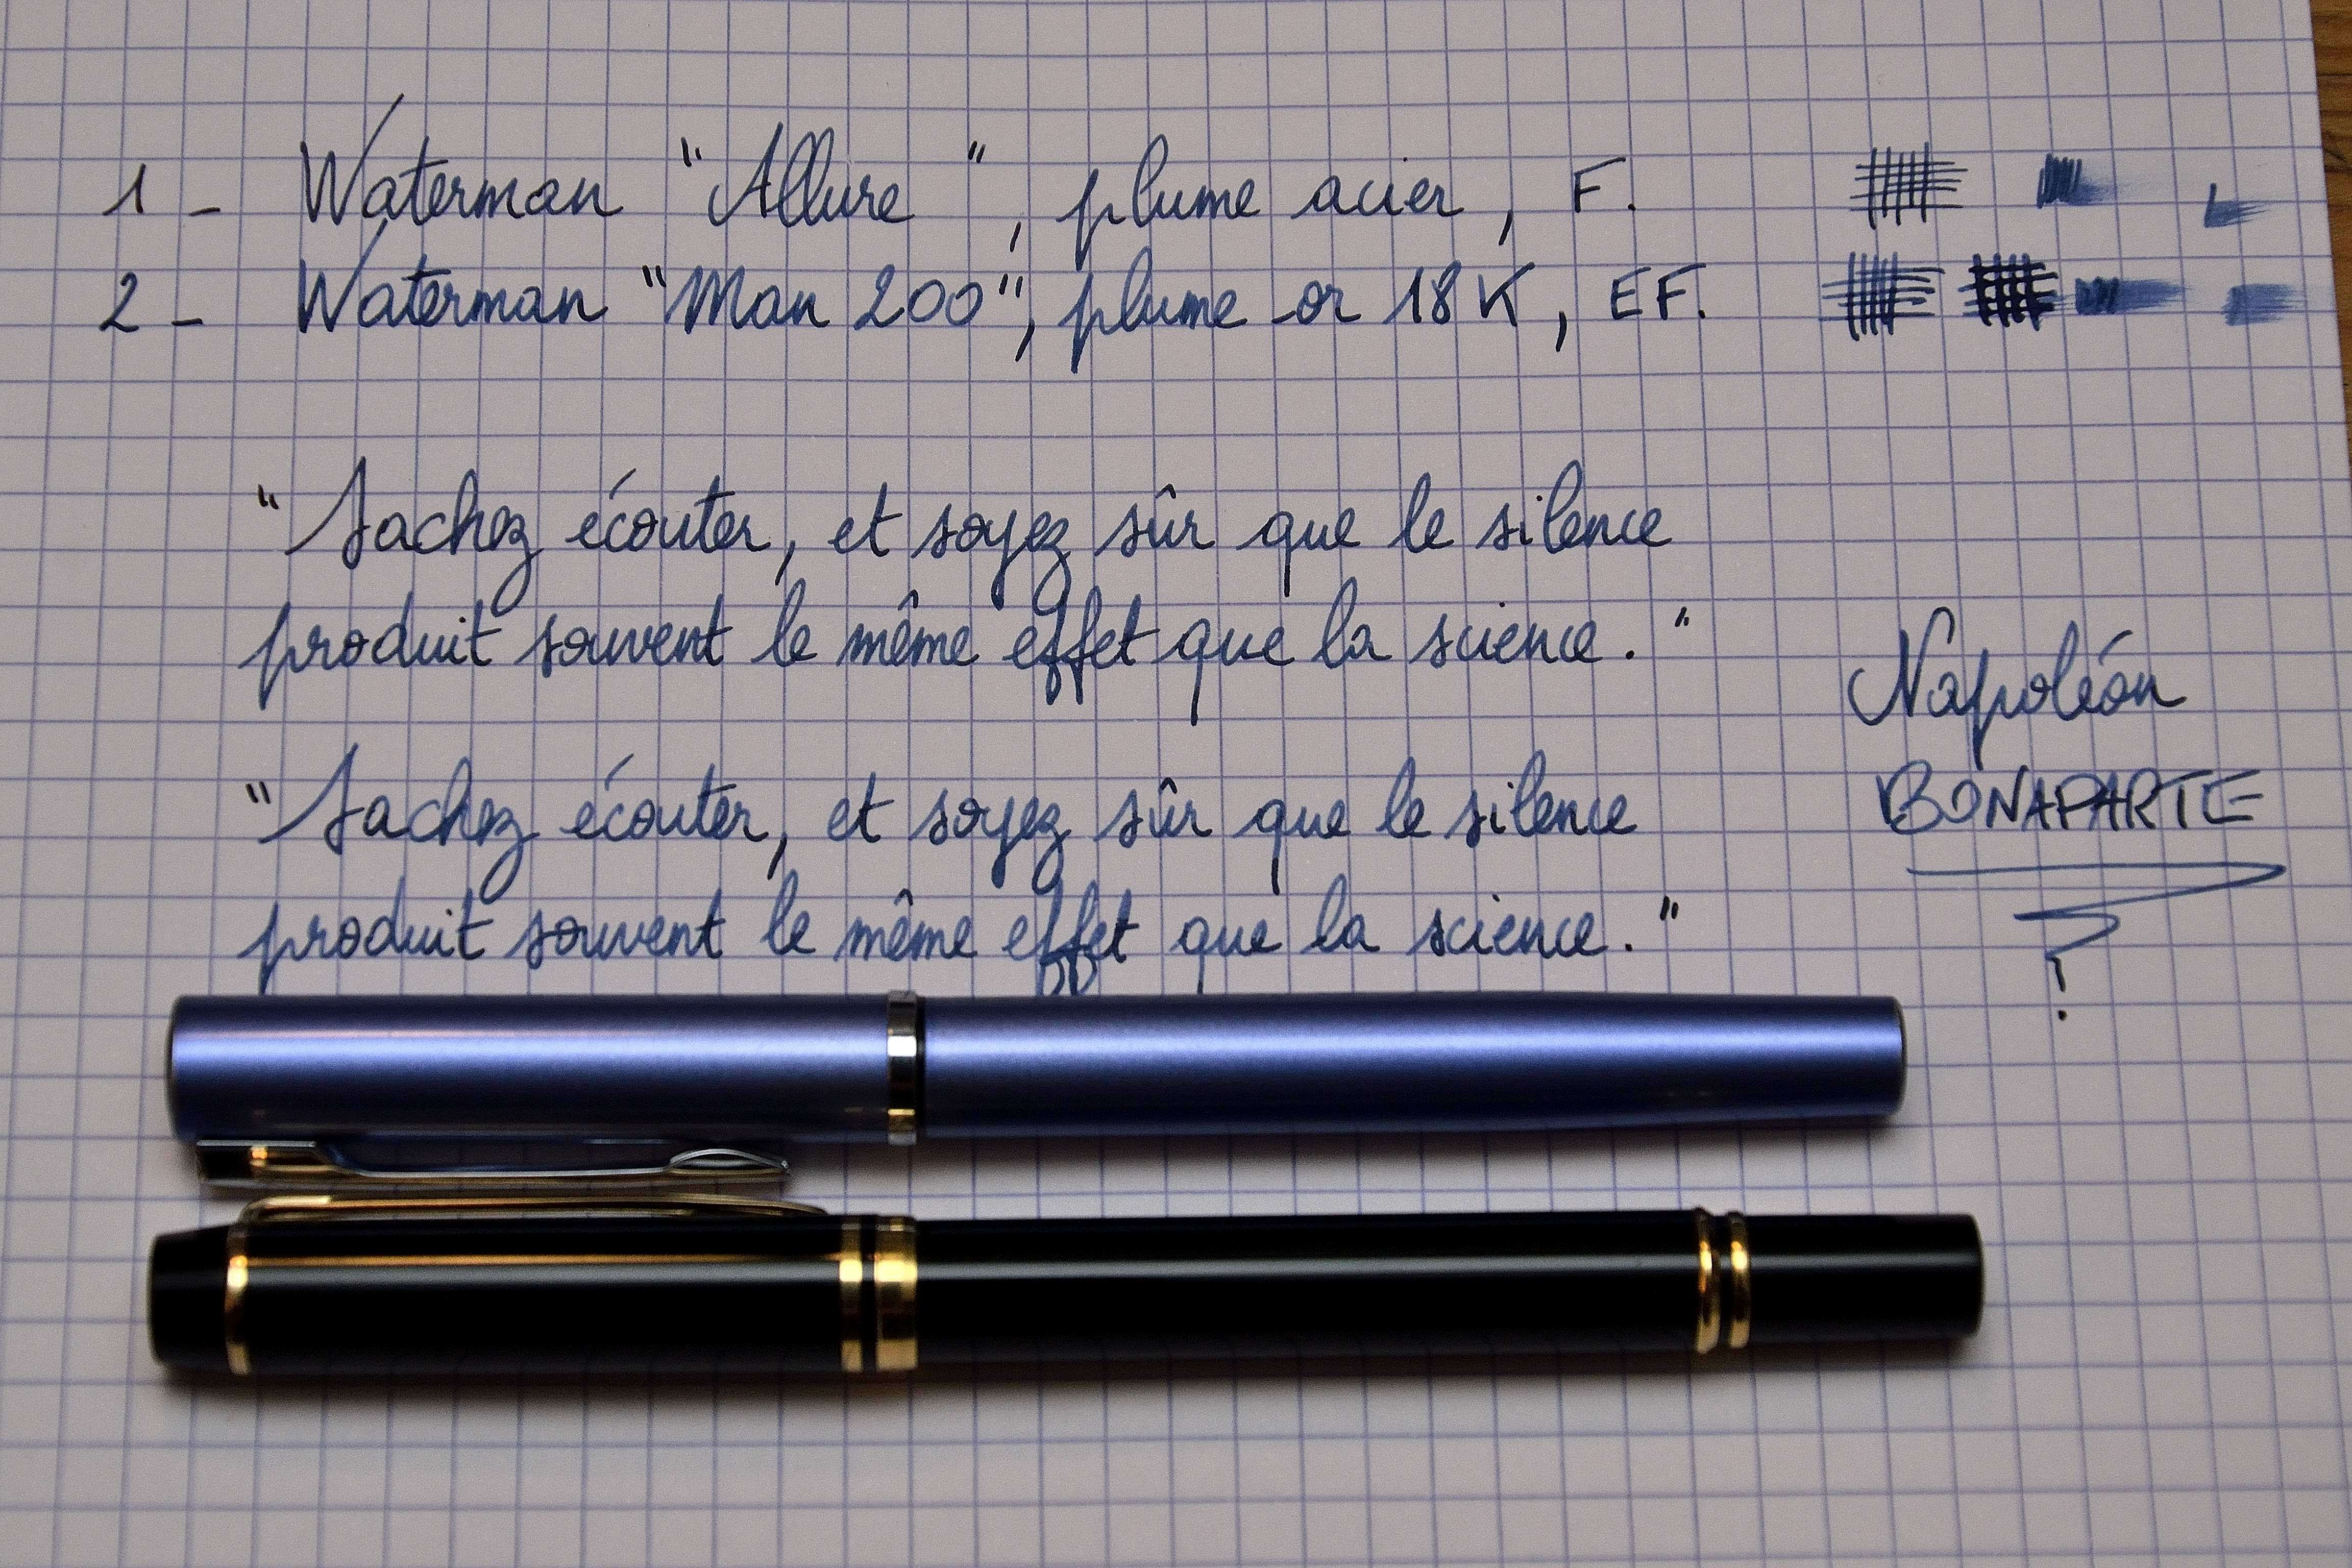 1 - Waterman "Allure", plume acier, F.
2 - Waterman "Man 200", plume or 18K, EF.
"Sachez écouter, et soyez sûr que le silence
produit souvent le même effet que la science."
Napoléon
BONAPARTE
"Sachez écouter, et soyez sûr que le silence
produit souvent le même effet que la science."
!